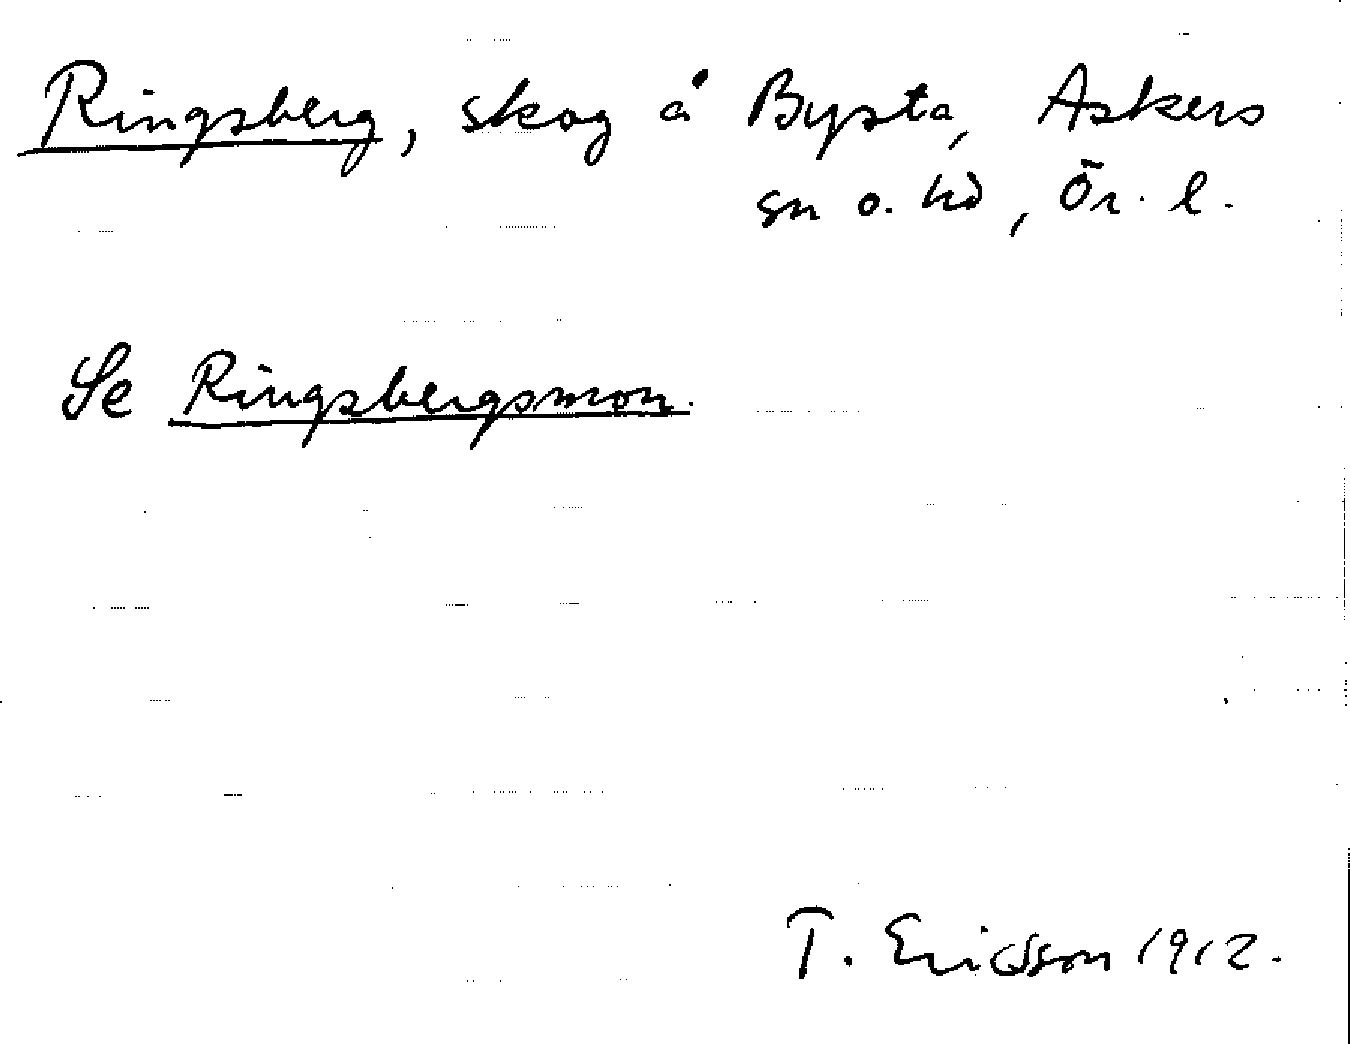 Ringsberg, skog å Bysta, Askers
sn o. hd, Ör. l.
Se Ringsbergsmon.
T. Ericsson 1912.